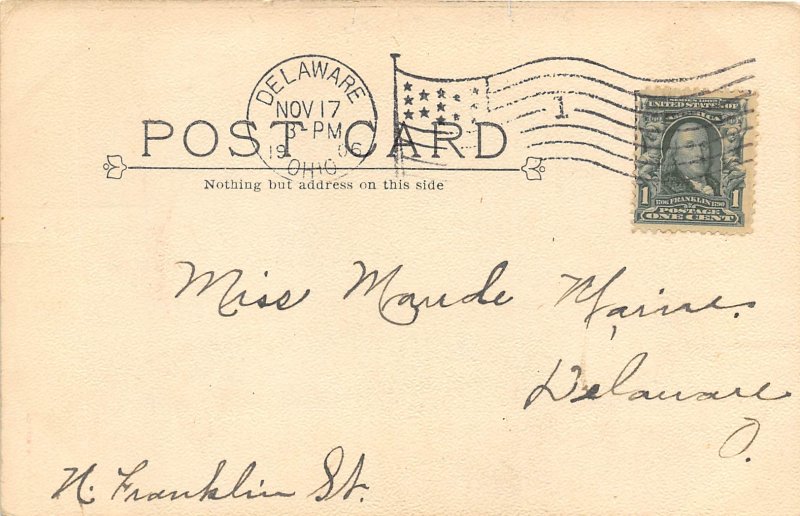 DELAWARE
NOV 17
3-PM
1906
OHIO
1
SERIES 1902
UNITED STATES OF
AMERICA
1 1706 FRANKLIN 1790 1
POSTAGE
ONE CENT
POST CARD
Nothing but address on this side
Miss Maude Marine.
Delaware
O.
N. Franklin St.